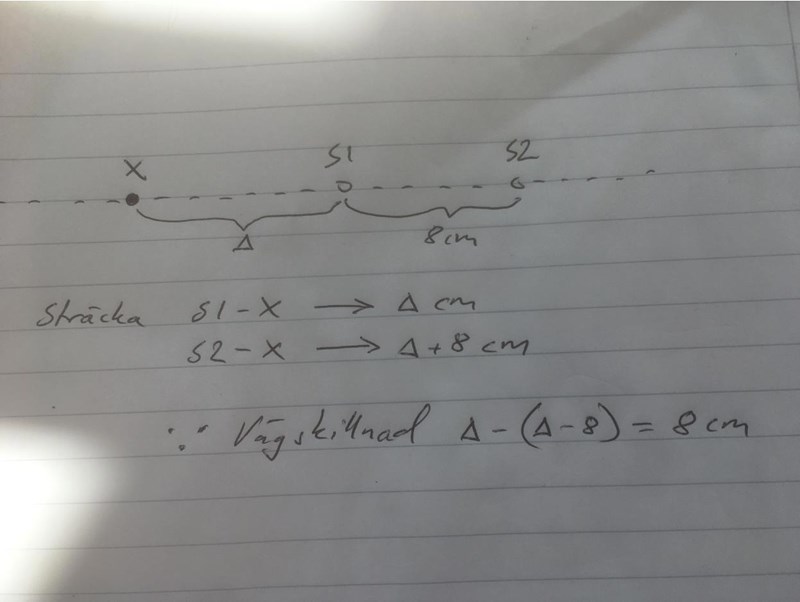 X S1 S2
Δ 8cm
Sträcka S1-X → Δ cm
S2-X → Δ+8 cm
∵ Vägskillnad Δ-(Δ-8) = 8cm